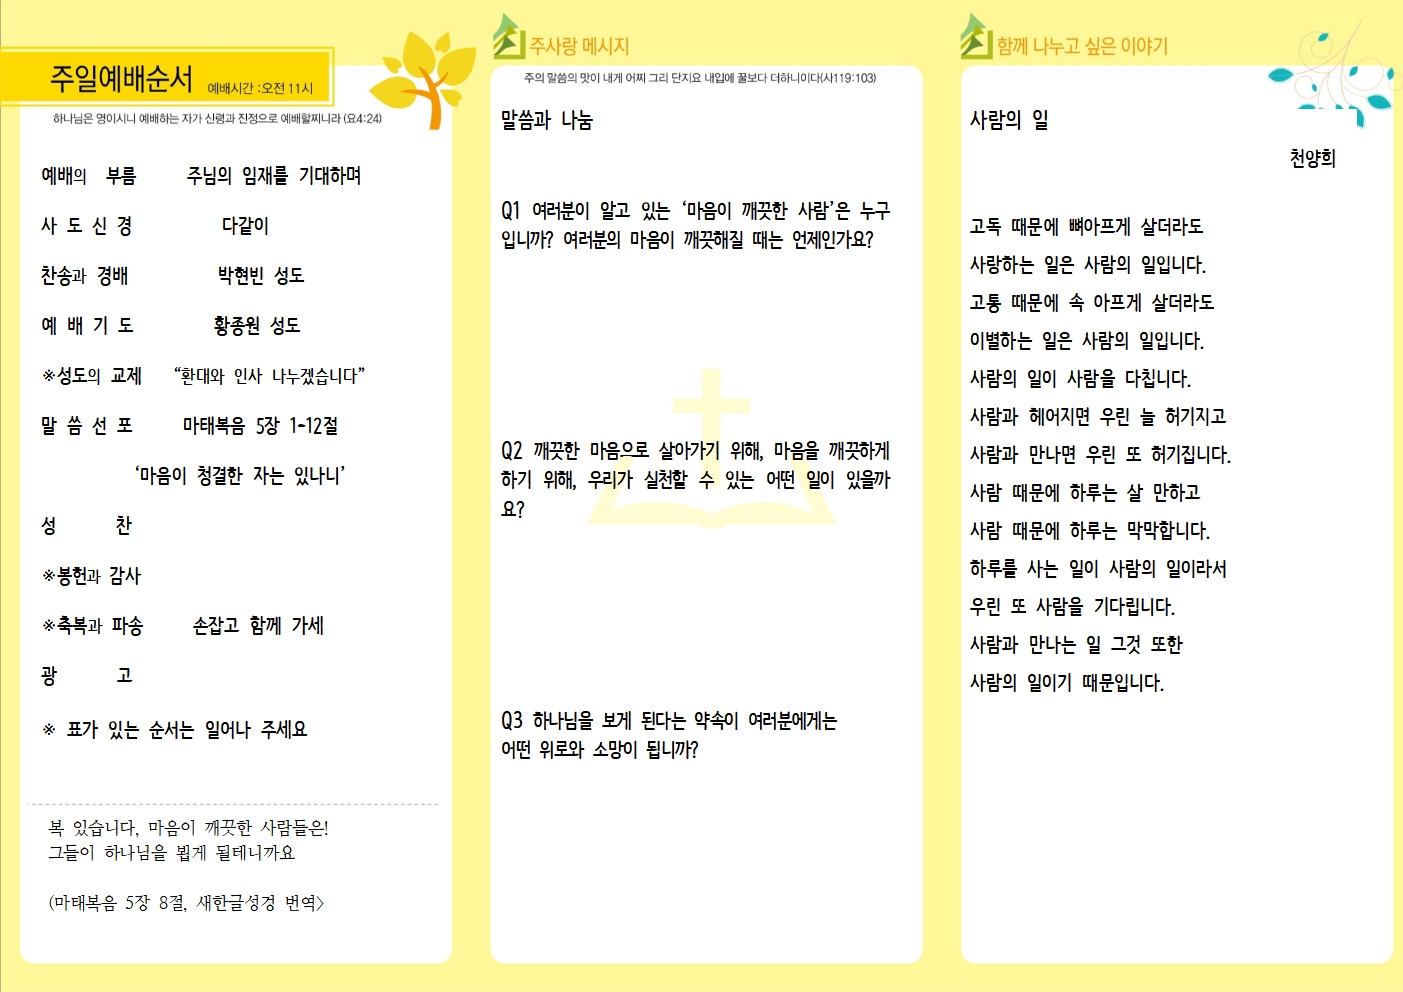 주일예배순서 예배시간 :오전 11시
하나님은 영이시니 예배하는 자가 신령과 진정으로 예배할찌니라 (요4:24)
예배의 부름 주님의 임재를 기대하며
사 도 신 경 다같이
찬송과 경배 박현빈 성도
예 배 기 도 황종원 성도
※성도의 교제 “환대와 인사 나누겠습니다”
말 씀 선 포 마태복음 5장 1-12절
‘마음이 청결한 자는 있나니’
성 찬
※봉헌과 감사
※축복과 파송 손잡고 함께 가세
광 고
※ 표가 있는 순서는 일어나 주세요
복 있습니다, 마음이 깨끗한 사람들은!
그들이 하나님을 뵙게 될테니까요
(마태복음 5장 8절, 새한글성경 번역>
주사랑 메시지
주의 말씀의 맛이 내게 어찌 그리 단지요 내입에 꿀보다 더하니이다(사119:103)
말씀과 나눔
Q1 여러분이 알고 있는 ‘마음이 깨끗한 사람’은 누구
입니까? 여러분의 마음이 깨끗해질 때는 언제인가요?
Q2 깨끗한 마음으로 살아가기 위해, 마음을 깨끗하게
하기 위해, 우리가 실천할 수 있는 어떤 일이 있을까
요?
Q3 하나님을 보게 된다는 약속이 여러분에게는
어떤 위로와 소망이 됩니까?
함께 나누고 싶은 이야기
사람의 일
천양희
고독 때문에 뼈아프게 살더라도
사랑하는 일은 사람의 일입니다.
고통 때문에 속 아프게 살더라도
이별하는 일은 사람의 일입니다.
사람의 일이 사람을 다칩니다.
사람과 헤어지면 우린 늘 허기지고
사람과 만나면 우린 또 허기집니다.
사람 때문에 하루는 살 만하고
사람 때문에 하루는 막막합니다.
하루를 사는 일이 사람의 일이라서
우린 또 사람을 기다립니다.
사람과 만나는 일 그것 또한
사람의 일이기 때문입니다.